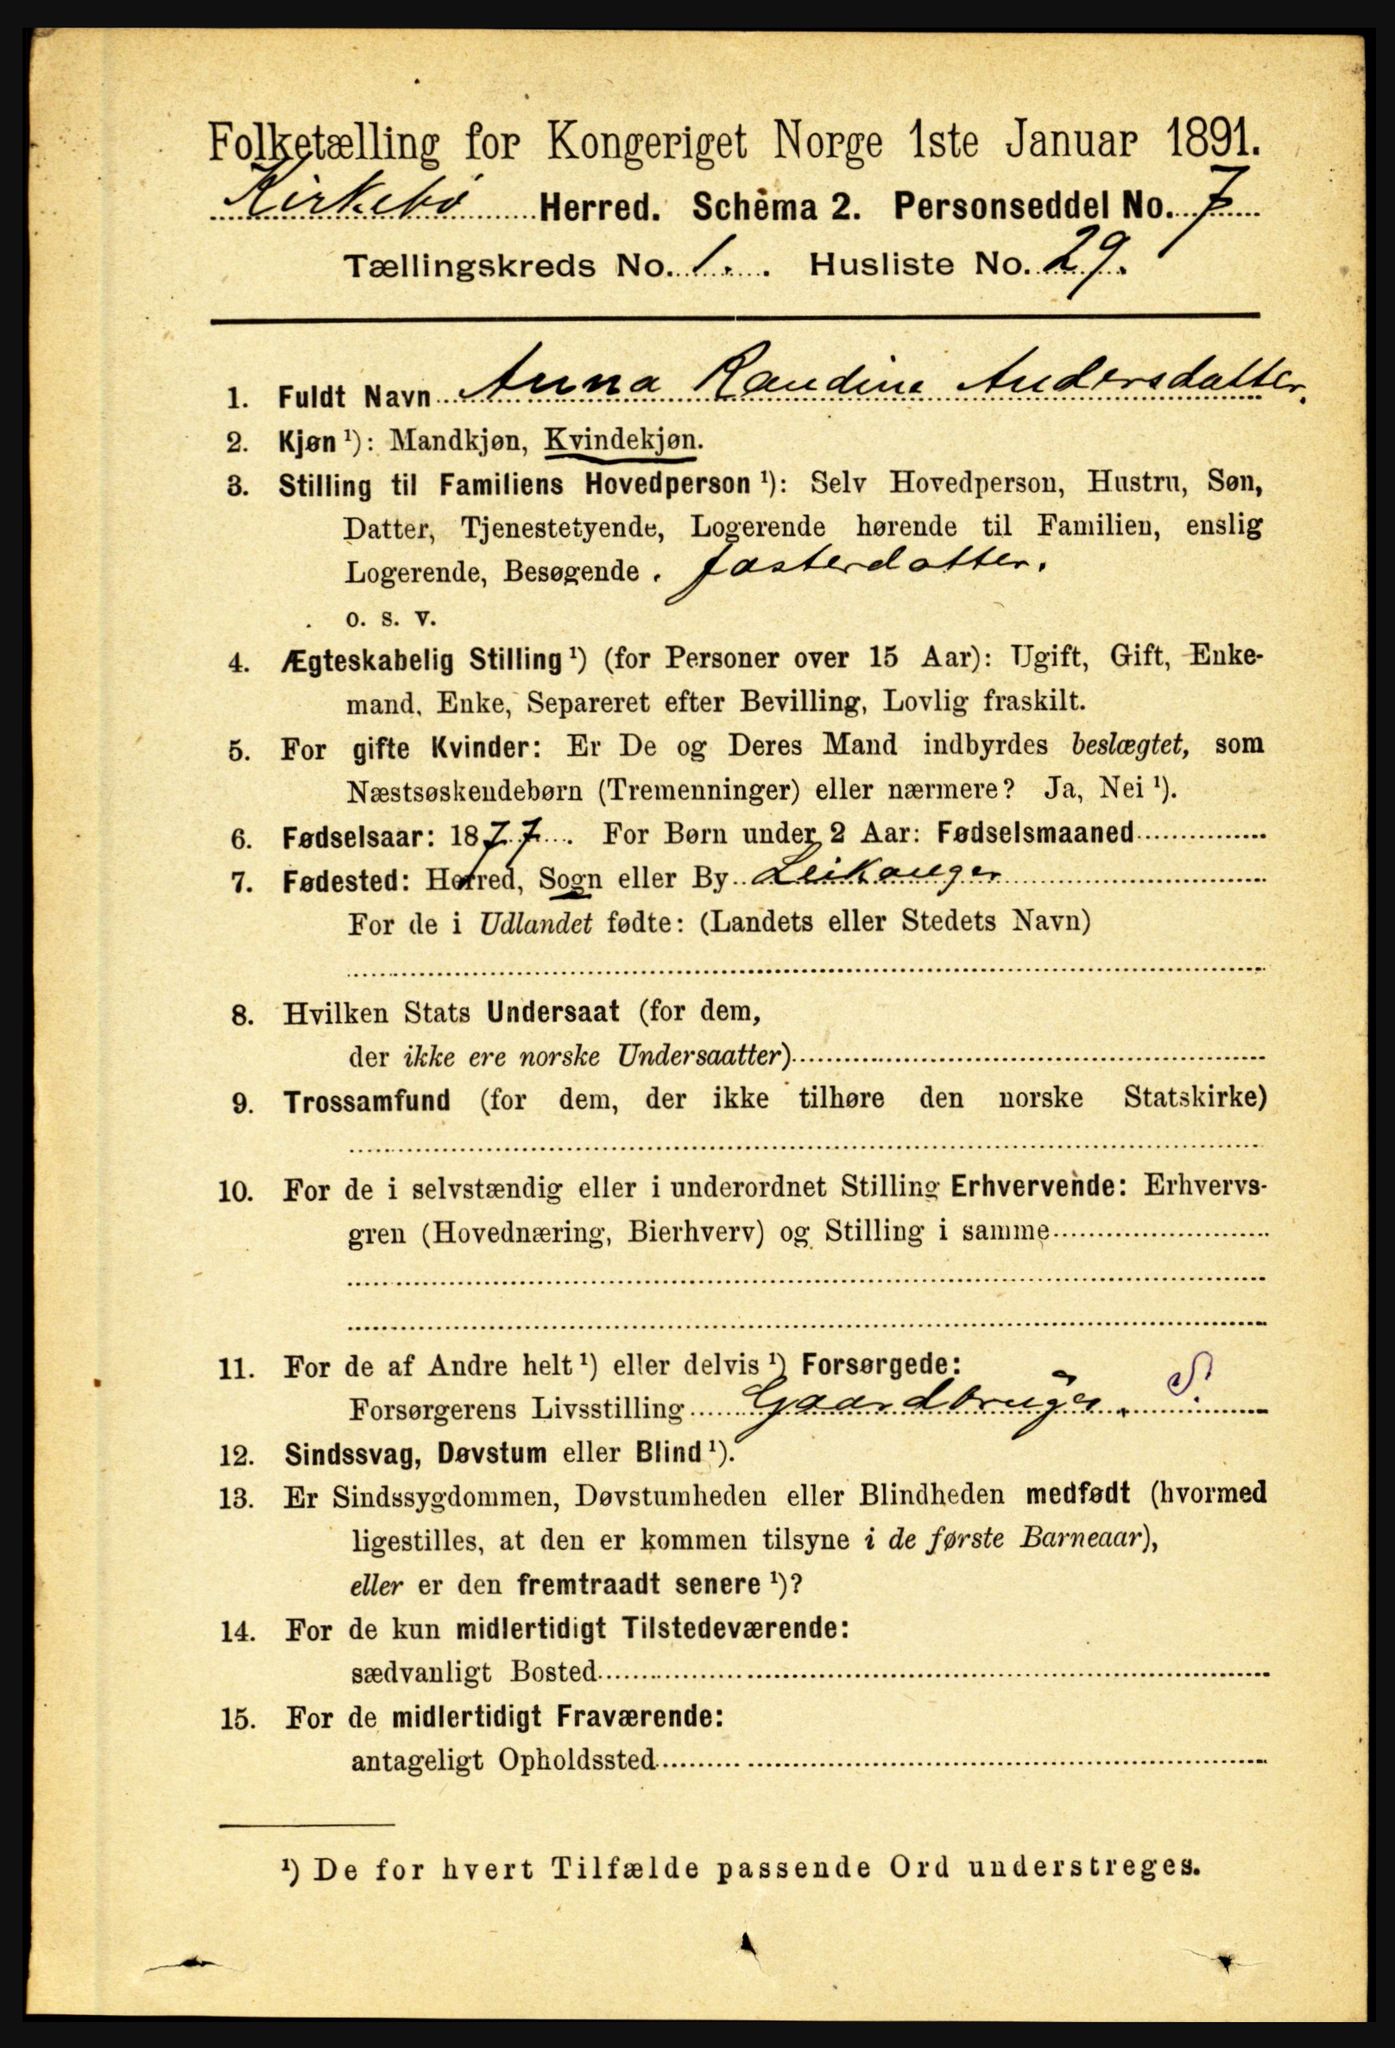 Folketælling for Kongeriget Norge 1ste Januar 1891.
Kirkebø Herred. Schema 2. Personseddel No. 7
Tællingskreds No. 1. Husliste No. 29.
1. Fuldt Navn Anna Randine Andersdatter.
2. Kjøn ¹): Mandkjøn, Kvindekjøn.
3. Stilling til Familiens Hovedperson ¹): Selv Hovedperson, Hustru, Søn,
Datter, Tjenestetyende, Logerende hørende til Familien, enslig
Logerende, Besøgende . fosterdatter.
o. s. v.
4. Ægteskabelig Stilling ¹) (for Personer over 15 Aar): Ugift, Gift, Enke-
mand, Enke, Separeret efter Bevilling, Lovlig fraskilt.
5. For gifte Kvinder: Er De og Deres Mand indbyrdes beslægtet, som
Næstsøskendebørn (Tremenninger) eller nærmere? Ja, Nei ¹).
6. Fødselsaar: 1877. For Børn under 2 Aar: Fødselsmaaned
7. Fødested: Herred, Sogn eller By Leikanger
For de i Udlandet fødte: (Landets eller Stedets Navn)
8. Hvilken Stats Undersaat (for dem,
der ikke ere norske Undersaatter)
9. Trossamfund (for dem, der ikke tilhøre den norske Statskirke)
10. For de i selvstændig eller i underordnet Stilling Erhvervende: Erhvervs-
gren (Hovednæring, Bierhverv) og Stilling i samme
11. For de af Andre helt ¹) eller delvis ¹) Forsørgede:
Forsørgerens Livsstilling Gaardbruger. S.
12. Sindssvag, Døvstum eller Blind ¹).
13. Er Sindssygdommen, Døvstumheden eller Blindheden medfødt (hvormed
ligestilles, at den er kommen tilsyne i de første Barneaar),
eller er den fremtraadt senere ¹)?
14. For de kun midlertidigt Tilstedeværende:
sædvanligt Bosted
15. For de midlertidigt Fraværende:
antageligt Opholdssted
¹) De for hvert Tilfælde passende Ord understreges.